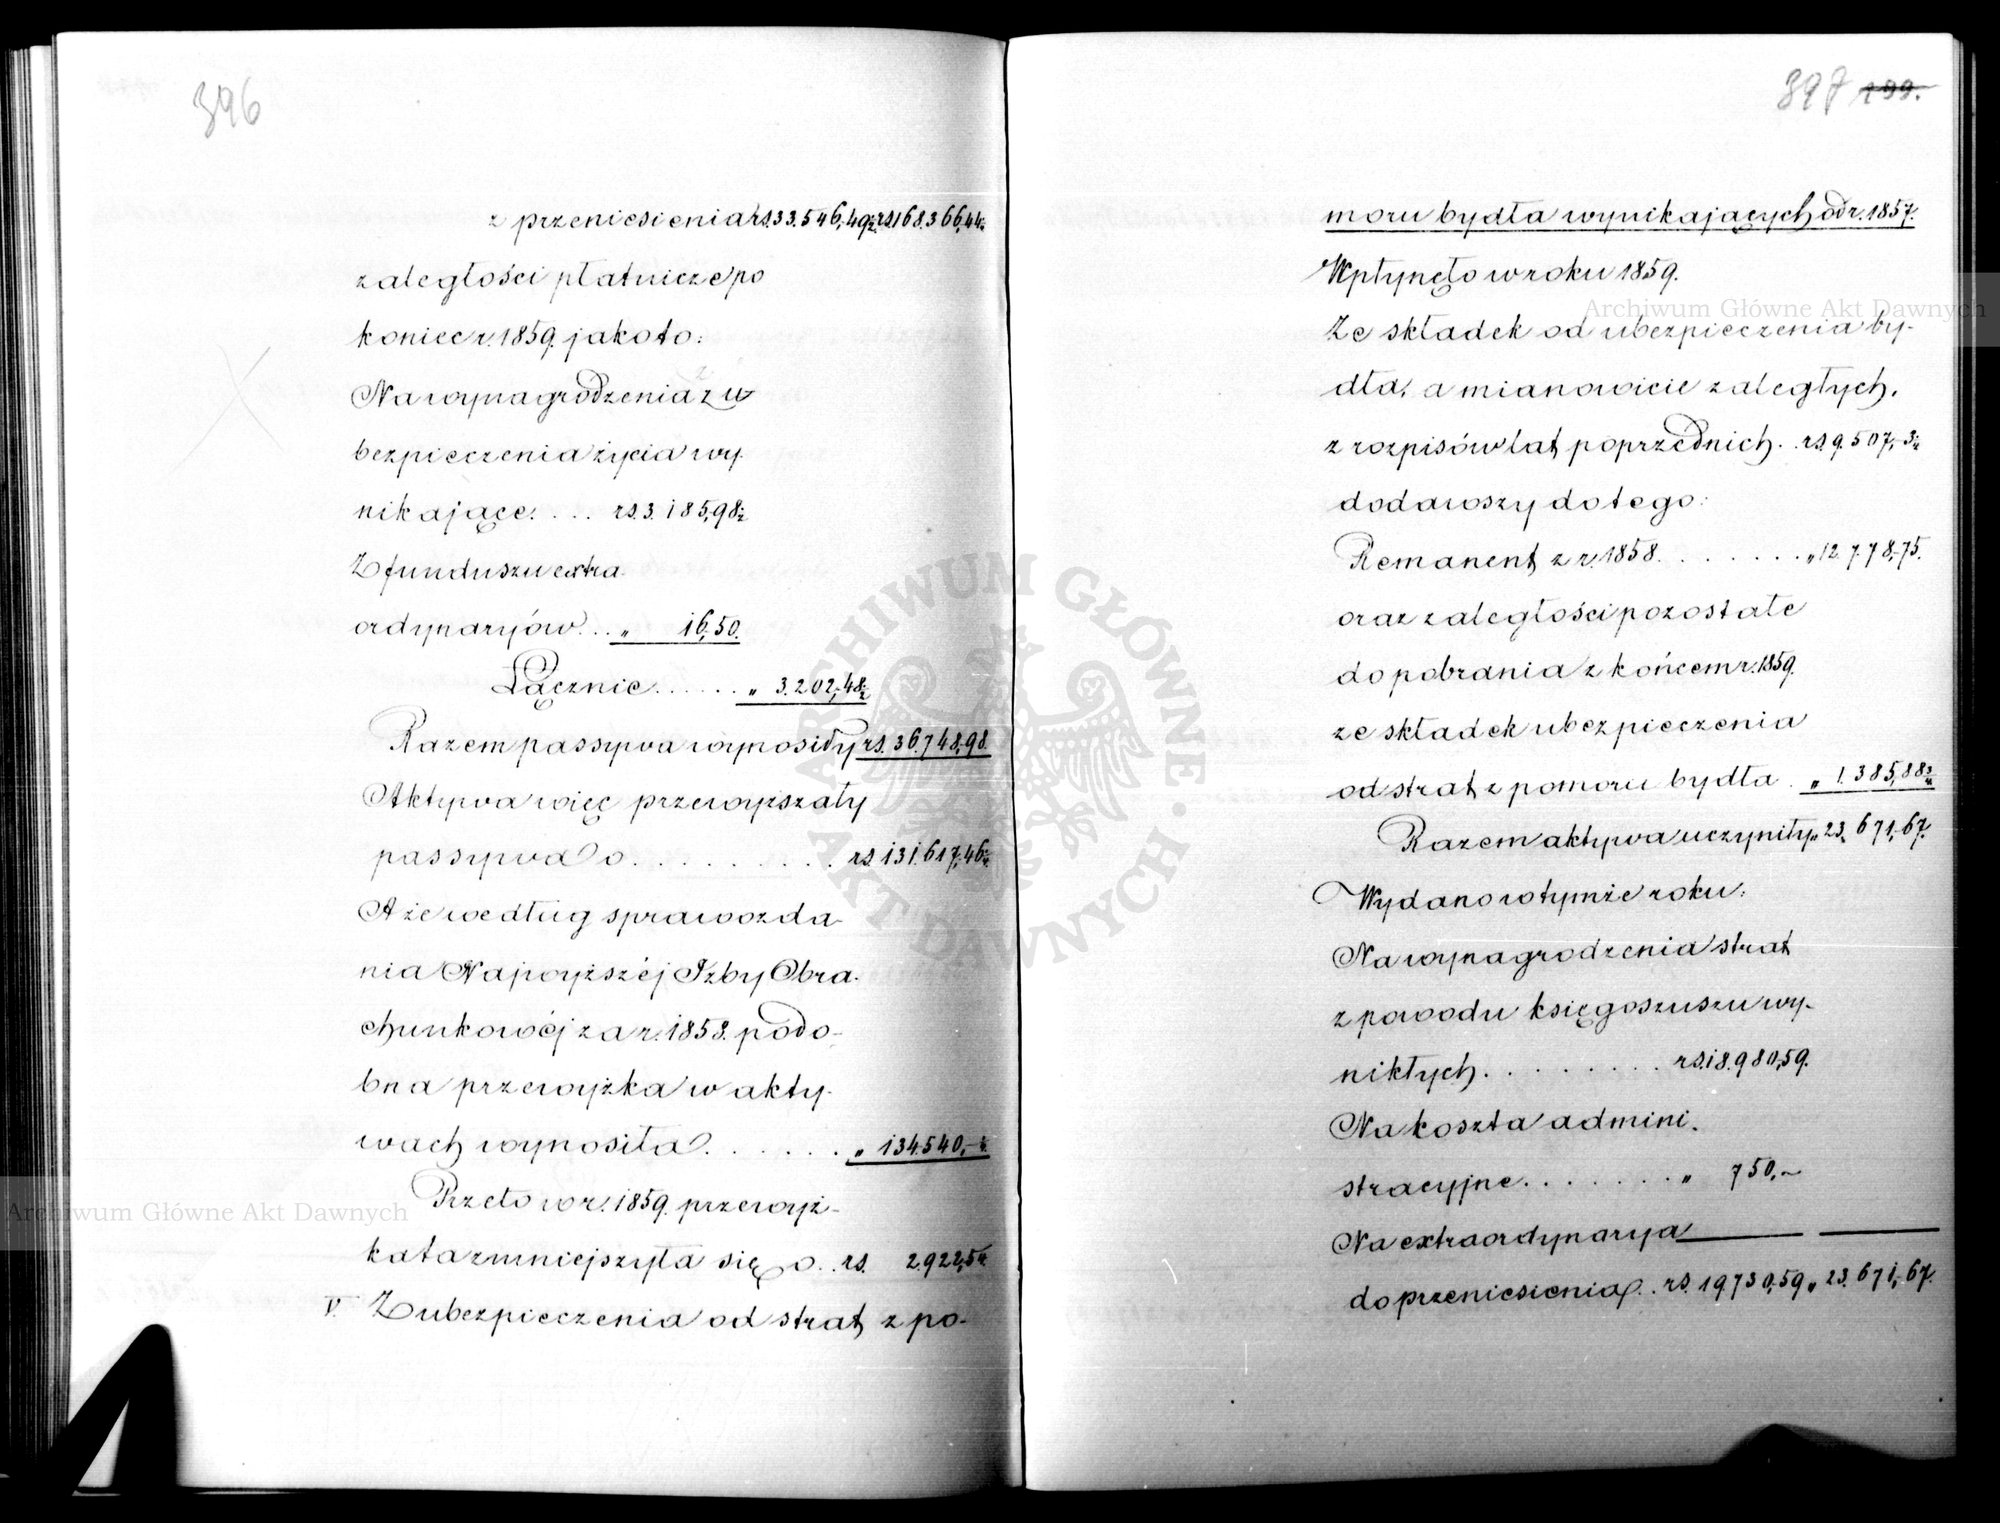 396
z przeniesienia rs. 33.546,49½ rs. 168.366,44¼
zaległości płatnicze po
koniec r. 1859. jako to:
Na wynagrodzenia z u-
bezpieczenia życia wy-
nikające. . . . rs. 3.185,98½
Z funduszu extra-
ordynaryów. . . „ 16,50.
Łącznie . . . . . . „ 3.202,48½
Razem passywa wynosiły rs. 36.748,98.
Aktywa więc przewyższały
passywa o . . . . . . . . . . rs. 131.617,46¼
A że według sprawozda-
nia Najwyższéj Izby Obra-
chunkowéj za r. 1858. podo-
bna przewyżka w akty-
wach wynosiła . . . . . . . „ 134.540,-¼
Przeto w r. 1859. przewyż-
ka ta zmniejszyła się o . . rs. 2.922,54.
V. Z ubezpieczenia od strat z po-
397 199.
moru bydła wynikających od r. 1857.
Wpłynęło w roku 1859.
Ze składek od ubezpieczenia by-
dła, a mianowicie zaległych,
z rozpisów lat poprzednich . . rs. 9.507,-3¼
dodawszy do tego:
Remanent z r. 1858. . . . . . . . „ 12.778,75.
oraz zaległości pozostałe
do pobrania z końcem r. 1859.
ze składek ubezpieczenia
od strat z pomoru bydła . „ 1.385,88¾
Razem aktywa uczyniły „ 23.671,67.
Wydano w tymże roku:
Na wynagrodzenia strat
z powodu księgosuszu wy-
nikłych . . . . . . . . . rs. 18.980,59.
Na koszta admini-
stracyjne . . . . . . . . „ 750,-
Na extraordynarya
do przeniesienia . . rs. 19.730,59 „ 23.671,67.
Archiwum Główne Akt Dawnych
Archiwum Główne Akt Dawnych
ARCHIWUM GŁÓWNE · AKT DAWNYCH ·